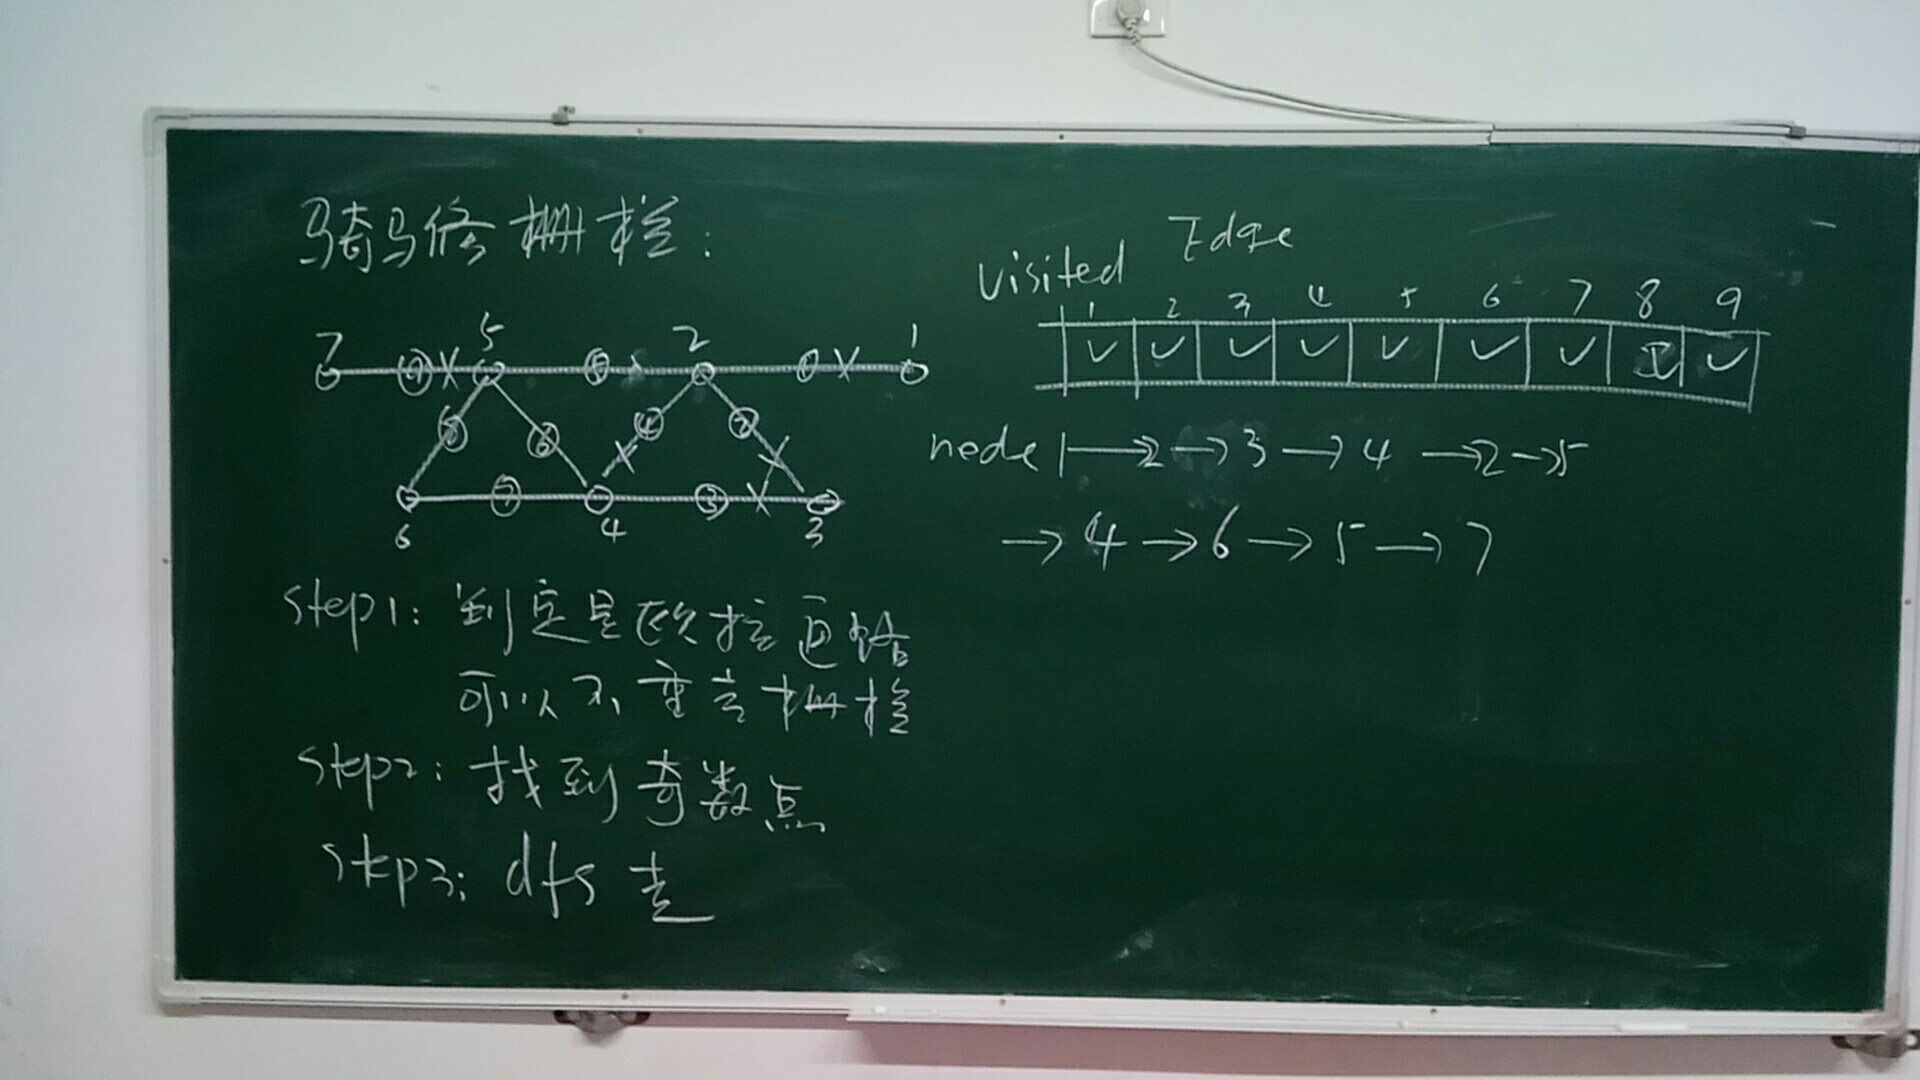 骑马修栅栏:
7 5 2 1
⑨ ⑤ ①
⑧ ⑥ ④ ②
⑦ ③
6 4 3
step1: 判定是欧拉通路
可以不重言栅栏
step2: 找到奇数点
step3: dfs 走
visited Edge
1 2 3 4 5 6 7 8 9
✓ ✓ ✓ ✓ ✓ ✓ ✓ ✓ ✓
node 1→2→3→4→2→5
→4→6→5→7